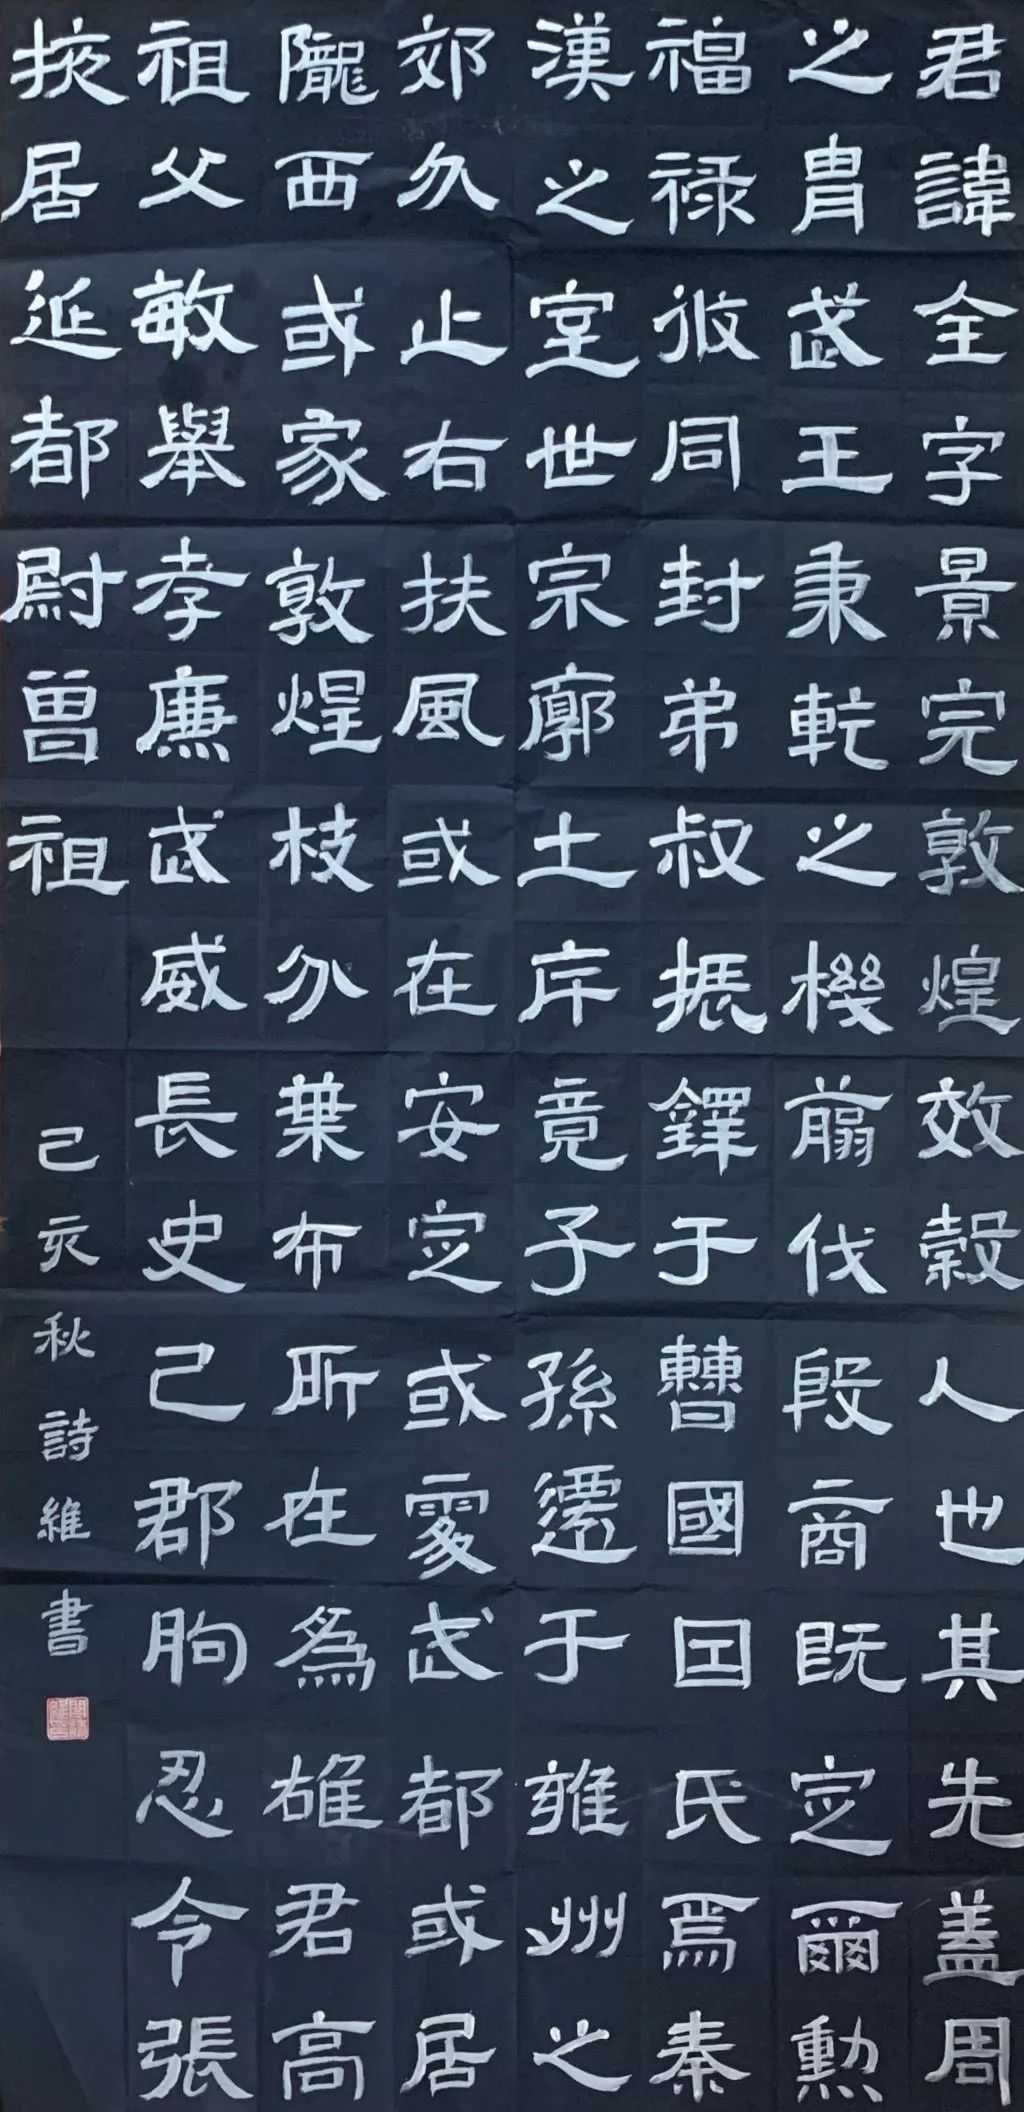 君諱全字景完敦煌效穀人也其先蓋周
之胄武王秉乾之機翦伐殷商既定爾勲
福禄攸同封弟叔振鐸于曹國因氏焉秦
漢之室世宗廓土斥竟子孫遷于雍州之
郊分止右扶風或在安定或處武都或居
隴西或家敦煌枝分葉布所在為雄君高
祖父敏舉孝廉武威長史己郡朐忍令張
掖居延都尉曾祖
己亥秋詩維書